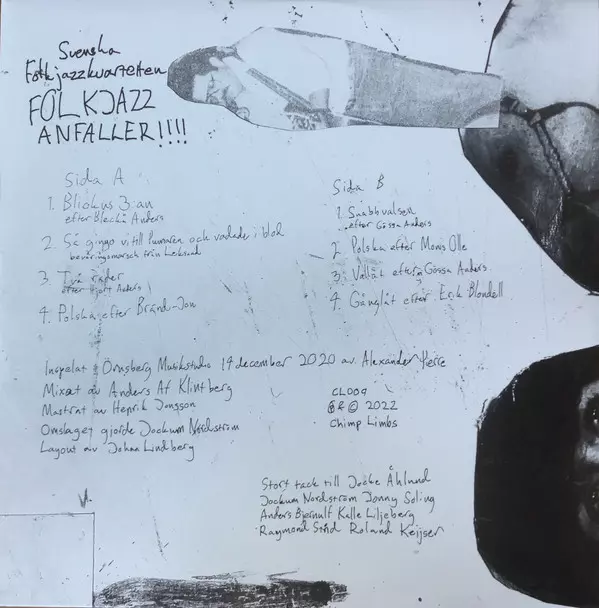 Svenska
Folkjazzkvartetten
FOLKJAZZ
ANFALLER!!!!
Sida A
1. Bliokus 3:an
efter Blecko Anders
2. Så gingo vi till humren och vadade i blod
beväringsmarsch från Leksand
3. Två räder
efter Hjort Anders
4. Polska efter Bränd-Jon
Sida B
1. Snabbvalsen
efter Gössa Anders
2. Polska efter Mons Olle
3. Vallåt efter Gössa Anders
4. Gånglåt efter Erik Blondell
Inspelat i Örnsberg Musikstudio 14 december 2020 av Alexander
Mixat av Anders Af Klintberg
Mastrat av Henrik Jonsson
Omslaget gjorde Jockum Nordström
Layout av Johan Lindberg
CL009
℗ & © 2022
Chimp Limbs
Stort tack till Jocke Åhlund
Jockum Nordström Jonny Soling
Anders Bjernulf Kalle Liljeberg
Raymond Strid Roland Keijser